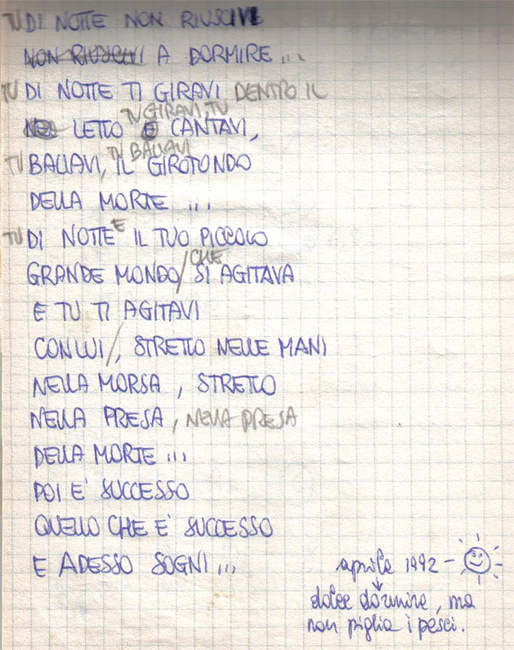 TU DI NOTTE NON RIUSCIVI
NON RIUSCIVI A DORMIRE ...
TU DI NOTTE TI GIRAVI DENTRO IL
TU GIRAVI, TU
NEL LETTO E CANTAVI,
TU BALLAVI
TU BALLAVI, IL GIROTONDO
DELLA MORTE ...
TU DI NOTTE E IL TUO PICCOLO
GRANDE MONDO / CHE SI AGITAVA
E TU TI AGITAVI
CON LUI /, STRETTO NELLE MANI
NELLA MORSA, STRETTO
NELLA PRESA, NELLA PRESA
DELLA MORTE ...
POI E' SUCCESSO
QUELLO CHE E' SUCCESSO
E ADESSO SOGNI ...
aprile 1992 -
dolce dormire, ma
non piglia i pesci.